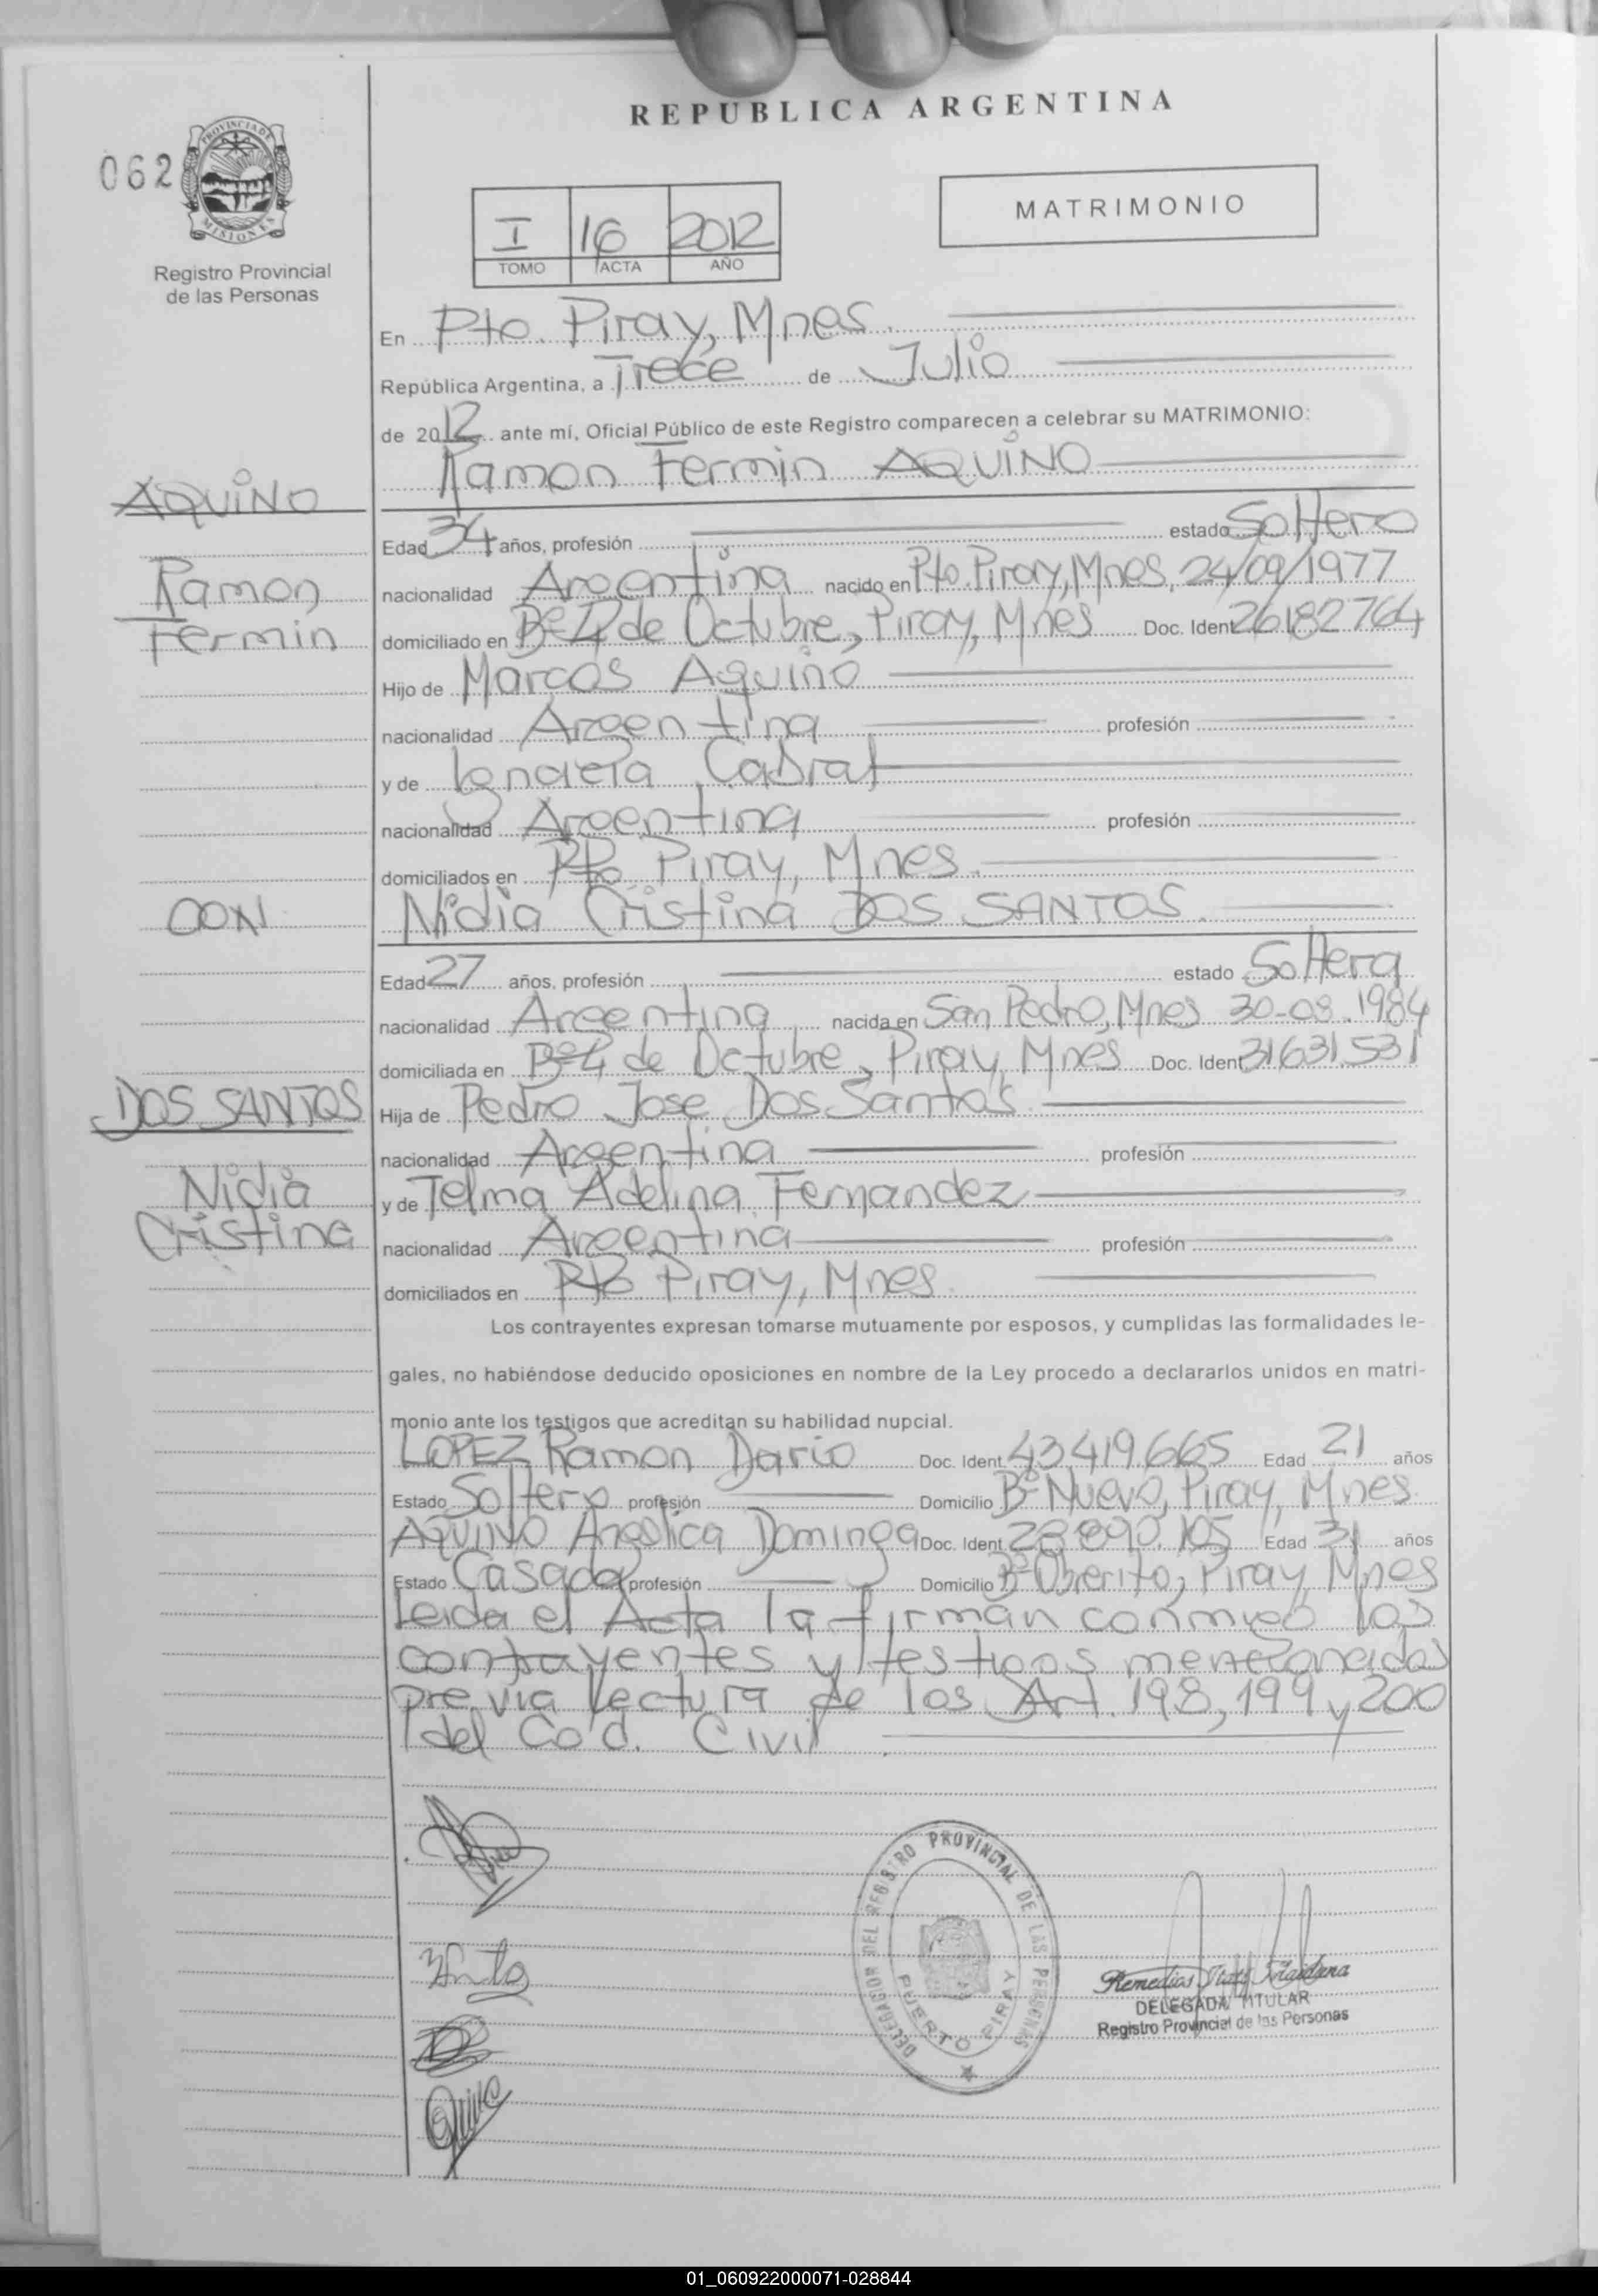 REPUBLICA ARGENTINA
062
PROVINCIA DE MISIONES
Registro Provincial
de las Personas
MATRIMONIO
I 16 2012
TOMO ACTA AÑO
En Pto. Piray, Mnes.
República Argentina, a Trece de Julio
de 2012 ante mí, Oficial Público de este Registro comparecen a celebrar su MATRIMONIO:
Ramon Fermin AQUINO
AQUINO
Ramon
Fermin
Edad 34 años, profesión estado Soltero
nacionalidad Argentina nacido en Pto. Piray, Mnes, 24/09/1977
domiciliado en Bº 4 de Octubre, Piray, Mnes Doc. Ident 26182764
Hijo de Marcos Aquino
nacionalidad Argentina profesión
y de Ignacia Cabral
nacionalidad Argentina profesión
domiciliados en Pto Piray, Mnes.
CON
Nidia Cristina DOS SANTOS.
Edad 27 años, profesión estado Soltera
nacionalidad Argentina nacida en San Pedro, Mnes 30-08.1984
domiciliada en Bº 4 de Octubre, Piray, Mnes Doc. Ident 31631.531
DOS SANTOS
Nidia
Cristina
Hija de Pedro Jose Dos Santos
nacionalidad Argentina profesión
y de Telma Adelina Fernandez
nacionalidad Argentina profesión
domiciliados en Pto Piray, Mnes.
Los contrayentes expresan tomarse mutuamente por esposos, y cumplidas las formalidades le-
gales, no habiéndose deducido oposiciones en nombre de la Ley procedo a declararlos unidos en matri-
monio ante los testigos que acreditan su habilidad nupcial.
LOPEZ Ramon Dario Doc. Ident. 43419.665 Edad 21 años
Estado Soltero profesión Domicilio Bº Nuevo, Piray, Mnes.
AQUINO Angelica Dominga Doc. Ident. 28890.105 Edad 31 años
Estado Casada profesión Domicilio Bº Obrerito, Piray, Mnes
Leida el Acta la firman conmigo los
contrayentes y testigos mencionados
previa lectura de los Art. 198, 199 y 200
del Cod. Civil
DELEGACION DEL REGISTRO PROVINCIAL DE LAS PERSONAS
PUERTO PIRAY
Remedios Itati
DELEGADA TITULAR
Registro Provincial de las Personas
01_060922000071-028844